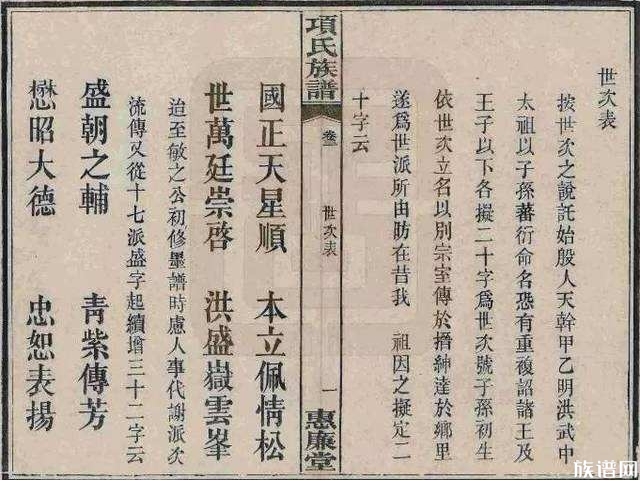 世次表
按世次之說託始殷人天幹甲乙明洪武中
太祖以子孫蕃衍命名恐有重複詔諸王及
王子以下各擬二十字爲世次號子孫初生
依世次立名以別宗室傳於搢紳達於鄉里
遂爲世派所由昉在昔我 祖因之擬定二
十字云
項氏族譜 卷三 世次表 一 惠廉堂
國正天星順 本立佩情松
世萬廷崇啓 洪盛嶽雲峯
迨至敏之公初修墨譜時慮人事代謝派次
流傳又從十七派盛字起續增三十二字云
盛朝之輔 青紫傳芳
懋昭大德 忠恕表揚
族谱网